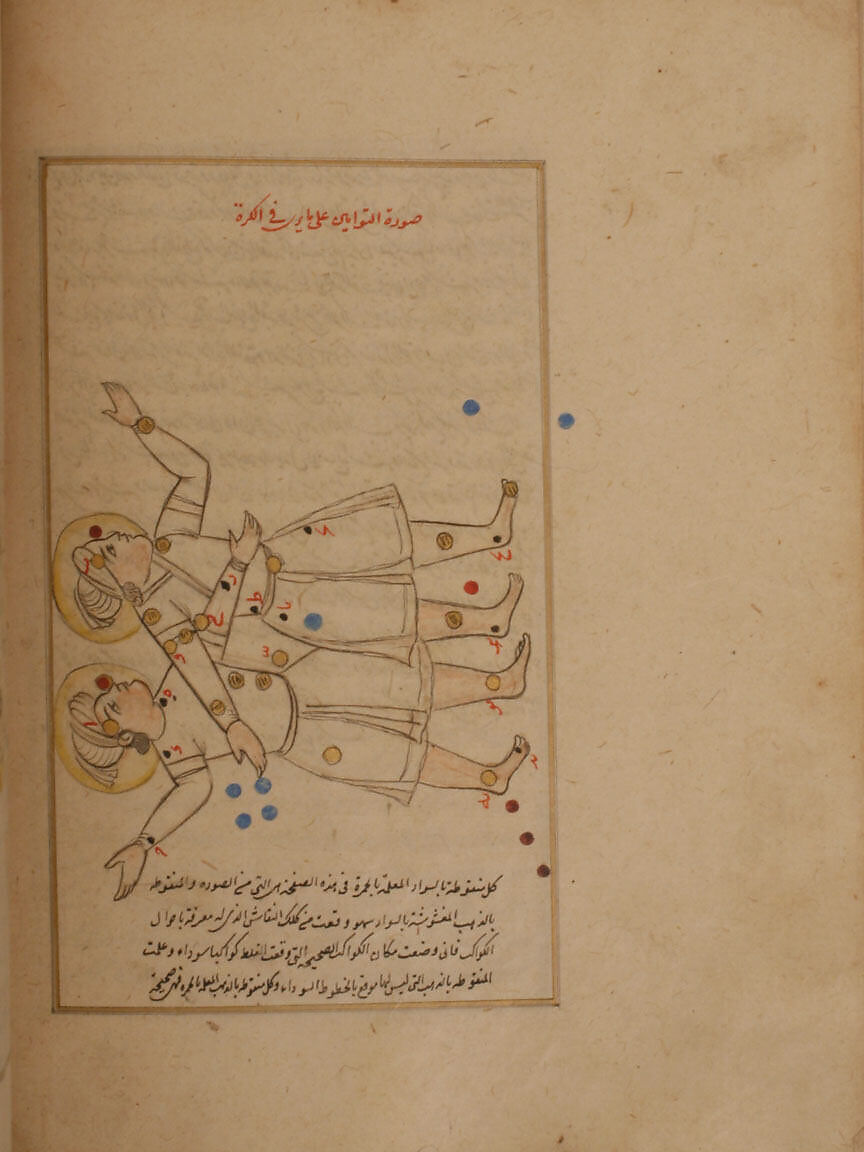 صورة التوأمين على ما يرى في الكرة
كل منقوطة بالسواد المعلمة بالحمرة في هذه الصفحة هي التي من الصورة والمنقوطة
بالذهب المغشوشة بالسواد سهو وقعت من كلك النقاش الذي له معرفة باحوال
الكواكب فاني وضعت مكان الكواكب الصحيحة التي وقعت الغلط كواكبا سوداء وعلمت
المنقوطة بالذهب التي ليس لها موقع بالخطوط السوداء وكل منقوطة بالذهب المعلمة بالحمرة فهي صحيحة